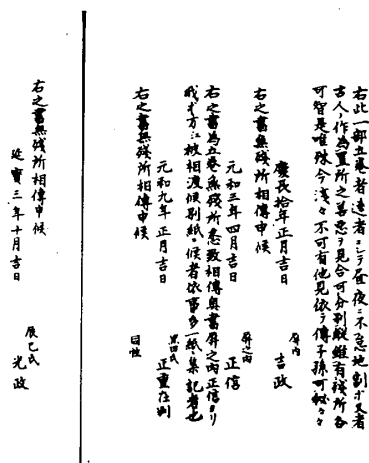 右此一部五巻者達者ニシテ昼夜ニ不怠地割ホ又者
古人ノ作為置所之善悪ヲ見合可分別縦雖有残所各
可智是唯殊今浅々不可有他見依テ傳子孫可秘々々
屏内
慶長拾年正月吉日 吉政
右之書無残所相傳申候
屏之内
元和三年四月吉日 正信
右之書為五巻無残所悉致相傳奥書屏之内正信ヨリ
我才方江被相渡候別紙ニ候者依事多一紙ニ集記者也
黒田氏
元和九年正月吉日 正重在判
右之書無残所相傳申候 同性
右之書無残所相傳申候
辰巳氏
延寶三年十月吉日 光政